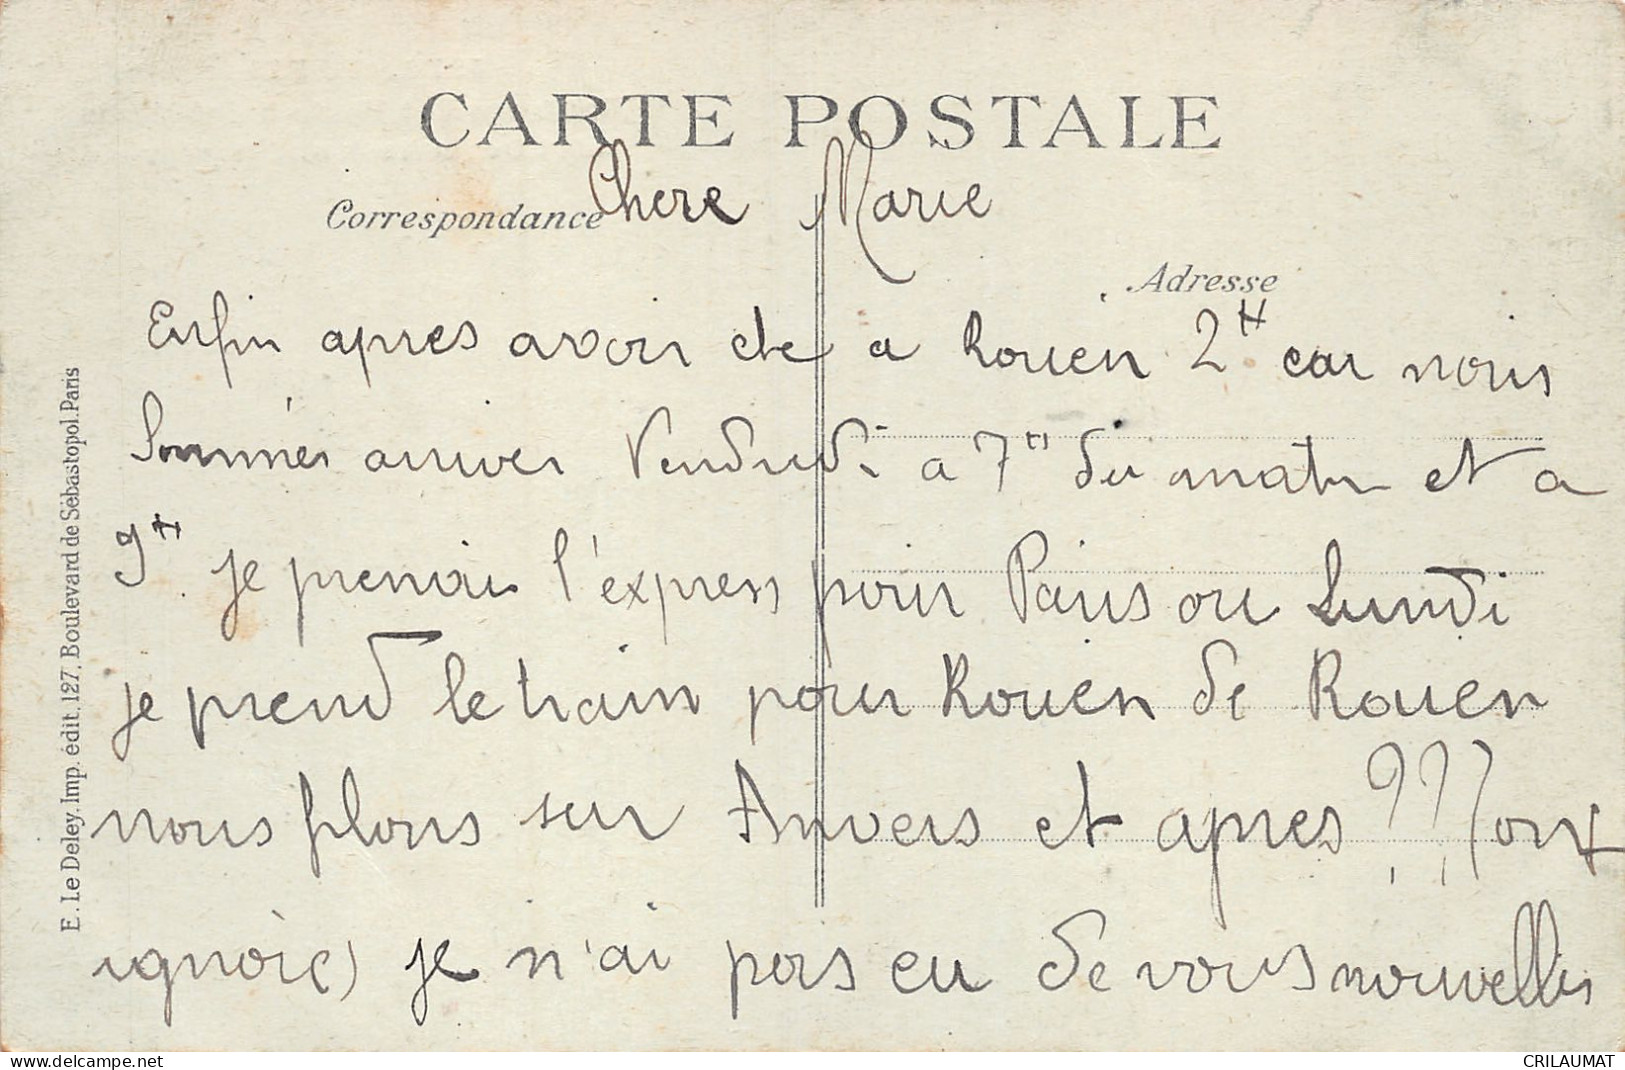 CARTE POSTALE
Correspondance
Chere Marie
Adresse
Enfin apres avoir ete a Rouen 2H car nous
sommes arriver Vendredi a 7H du matin et a
9H je prenais l'express pour Paris ou Lundi
je prend le train pour Rouen de Rouen
nous filons sur Anvers et apres ??? (ont
ignore) je n'ai pas eu de vous nouvelles
E. Le Deley, Imp. édit. 127, Boulevard de Sébastopol. Paris
www.delcampe.net
CRILAUMAT